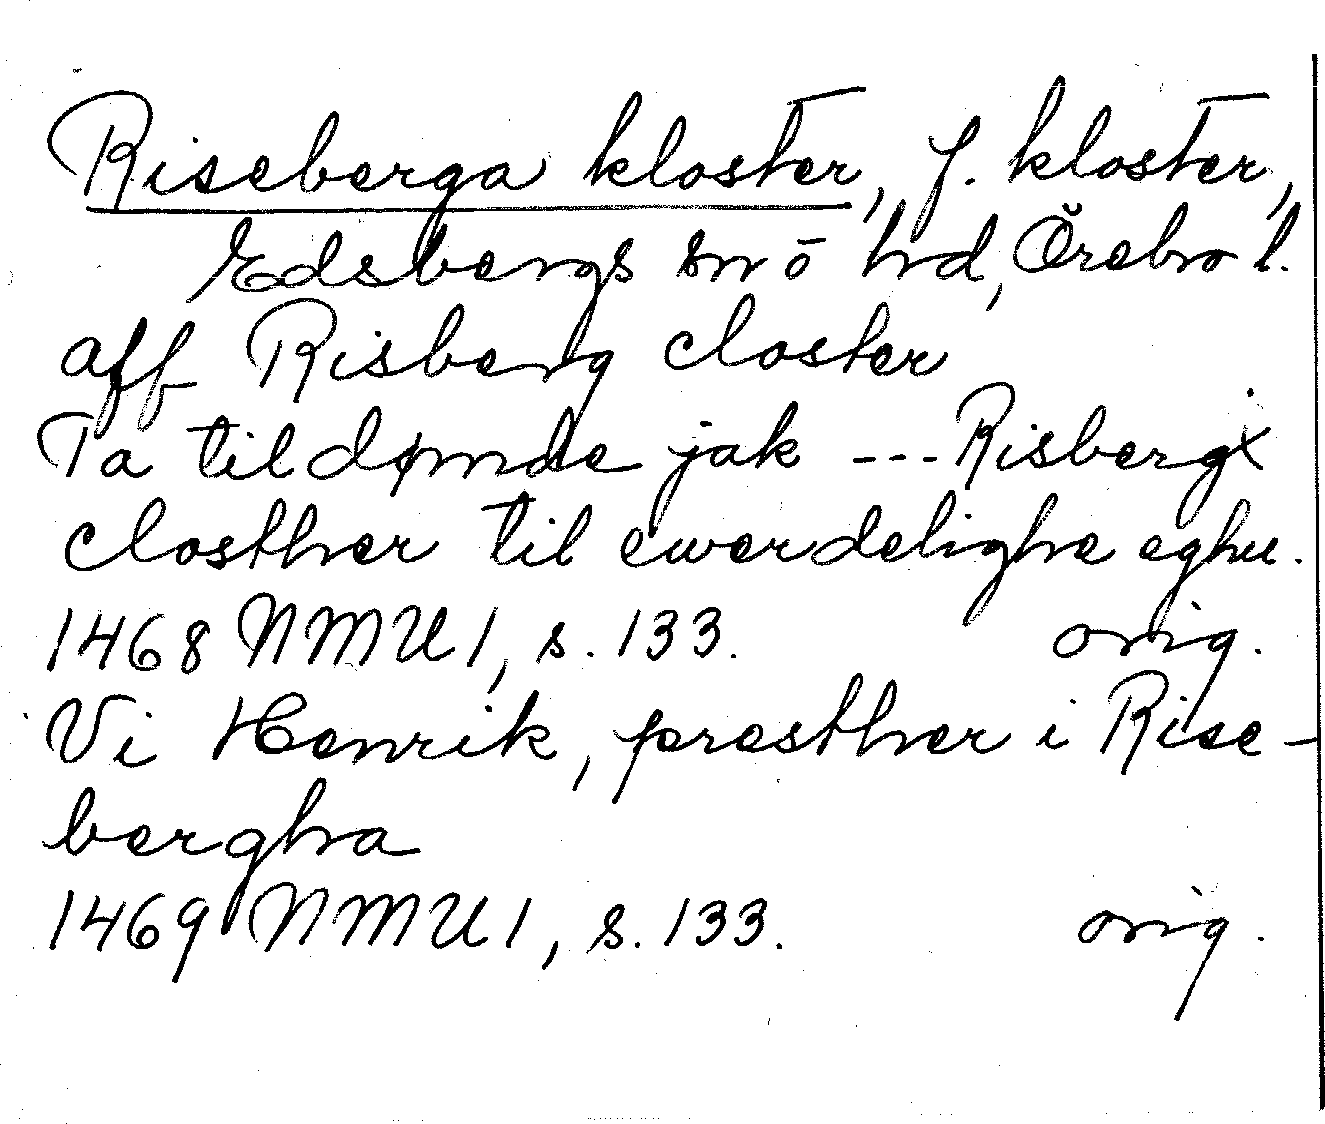 Riseberga kloster, f. kloster,
Edsbergs sn o hd, Örebro l.
aff Risberg closter
Ta tildømde jak --- Risbergx
closther til ewerdelighe eghu.
1468 NMU 1, s. 133. orig.
Vi Henrik, presther i Rise-
bergha
1469 NMU 1, s. 133. orig.